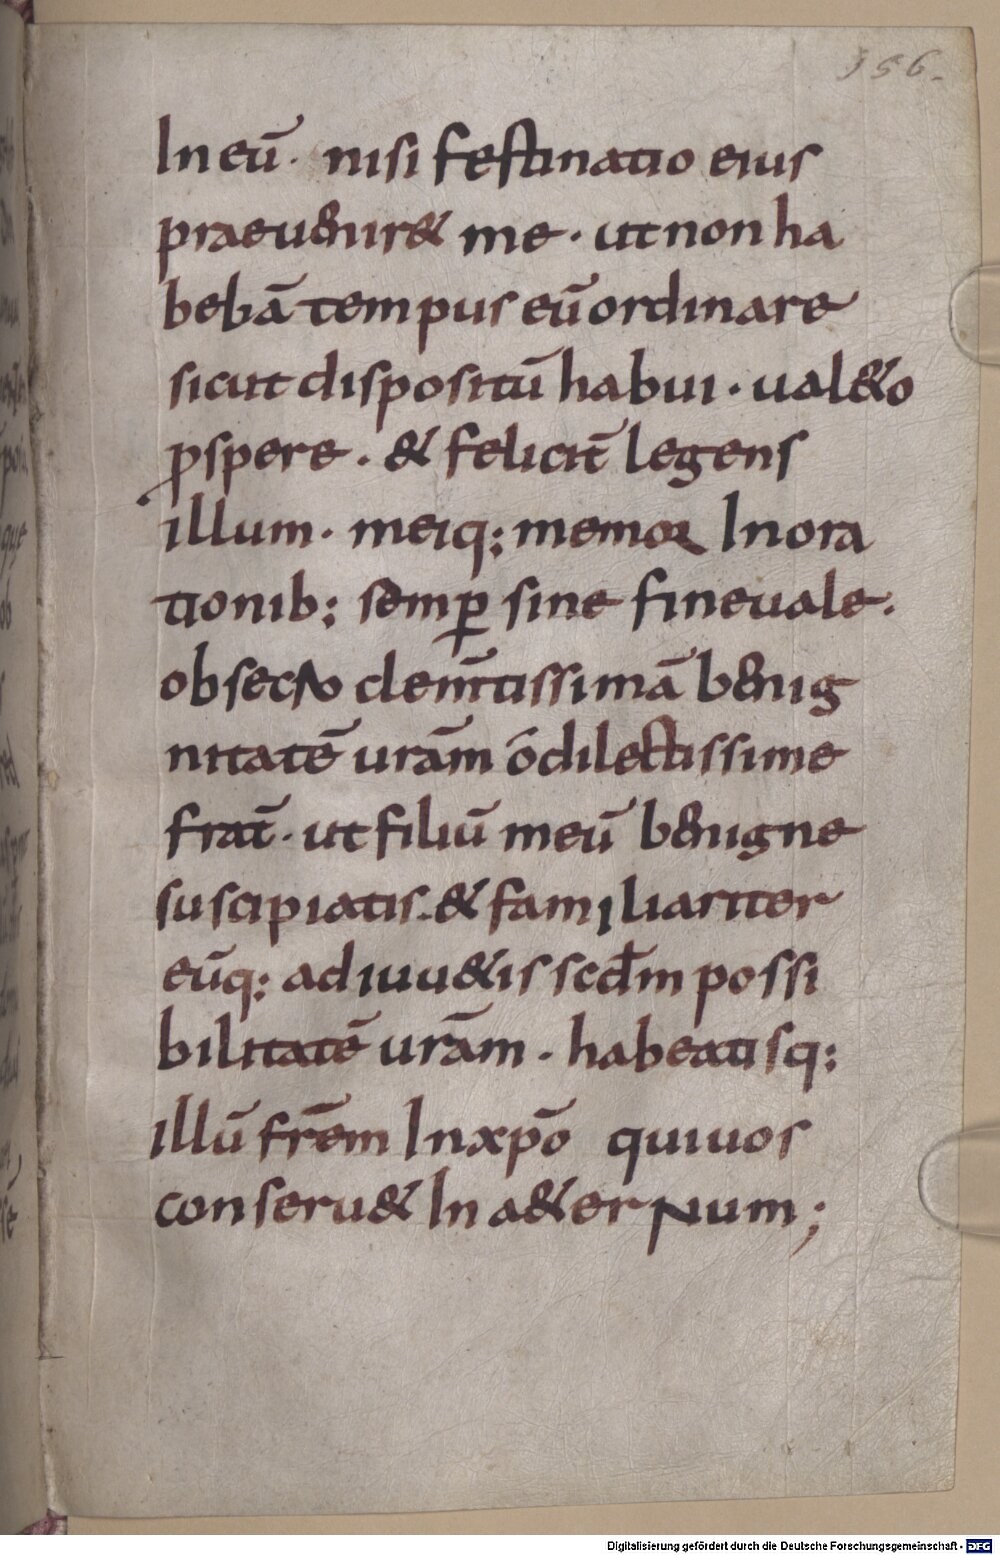 356.
In eū. nisi festinatio eius
praeuenir& me. ut non ha
bebā tempus eū ordinare
sicut dispositū habui. ual&o
ꝓspere. & felicit̄ legens
illum. meiq; memor In ora
tionib; semꝑ sine fine uale.
obsecro clem̄tissimā benig
nitatē urām ō dilectissime
frat̄. ut filiū meū benigne
suscipiatis. & familiariter
eūq; adiuu&is scd̄m possi
bilitatē urām. habeatisq;
illū fr̄em In xp̄o qui uos
conseru& In a&ernum;
Digitalisierung gefördert durch die Deutsche Forschungsgemeinschaft - DFG